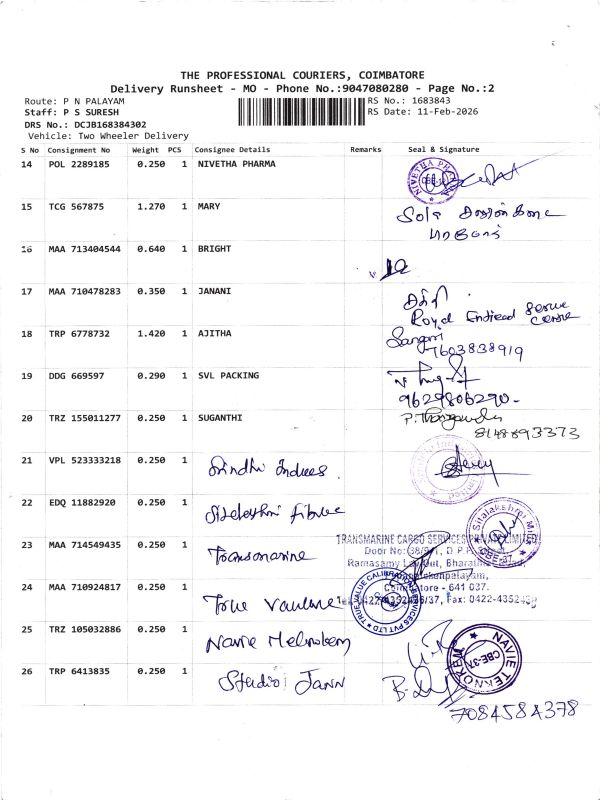 THE PROFESSIONAL COURIERS, COIMBATORE
Delivery Runsheet - MO - Phone No.:9047080280 - Page No.:2
Route: P N PALAYAM
RS No.: 1683843
Staff: P S SURESH
RS Date: 11-Feb-2026
DRS No.: DCJB168384302
Vehicle: Two Wheeler Delivery
S No Consignment No Weight PCS Consignee Details Remarks Seal & Signature
14 POL 2289185 0.250 1 NIVETHA PHARMA
15 TCG 567875 1.270 1 MARY
16 MAA 713404544 0.640 1 BRIGHT
17 MAA 710478283 0.350 1 JANANI
Royal Enfield Service Centre
18 TRP 6778732 1.420 1 AJITHA
7603838919
19 DDG 669597 0.290 1 SVL PACKING
9629806290
20 TRZ 155011277 0.250 1 SUGANTHI
8148893373
21 VPL 523333218 0.250 1
22 EDQ 11882920 0.250 1
Sitalakshmi Mills
23 MAA 714549435 0.250 1 Transmarine
TRANSMARINE CARGO SERVICES PRIVATE LIMITED
Door No:38/ D.P.
Ramasamy Layout, Bharathi
Coimbatore - 641 037.
Fax: 0422-4352439
24 MAA 710924817 0.250 1 True
TRUE VALUE CALIBRATION SERVICES PVT LTD
25 TRZ 105032886 0.250 1 Navie
NAVIE TEKNOKEM
CBE-37
26 TRP 6413835 0.250 1 Studio
7084584378